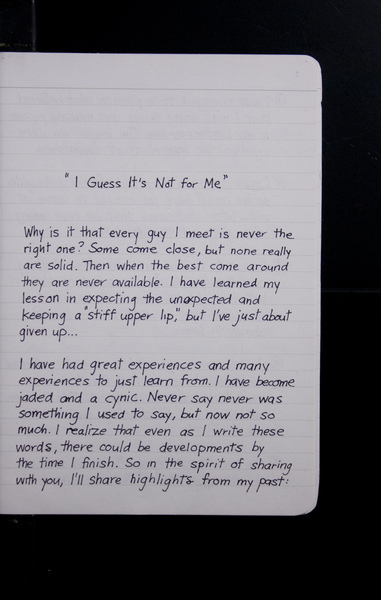 "I Guess It's Not for Me"
Why is it that every guy I meet is never the
right one? Some come close, but none really
are solid. Then when the best come around
they are never available. I have learned my
lesson in expecting the unexpected and
keeping a "stiff upper lip," but I've just about
given up...
I have had great experiences and many
experiences to just learn from. I have become
jaded and a cynic. Never say never was
something I used to say, but now not so
much. I realize that even as I write these
words, there could be developments by
the time I finish. So in the spirit of sharing
with you, I'll share highlights from my past: